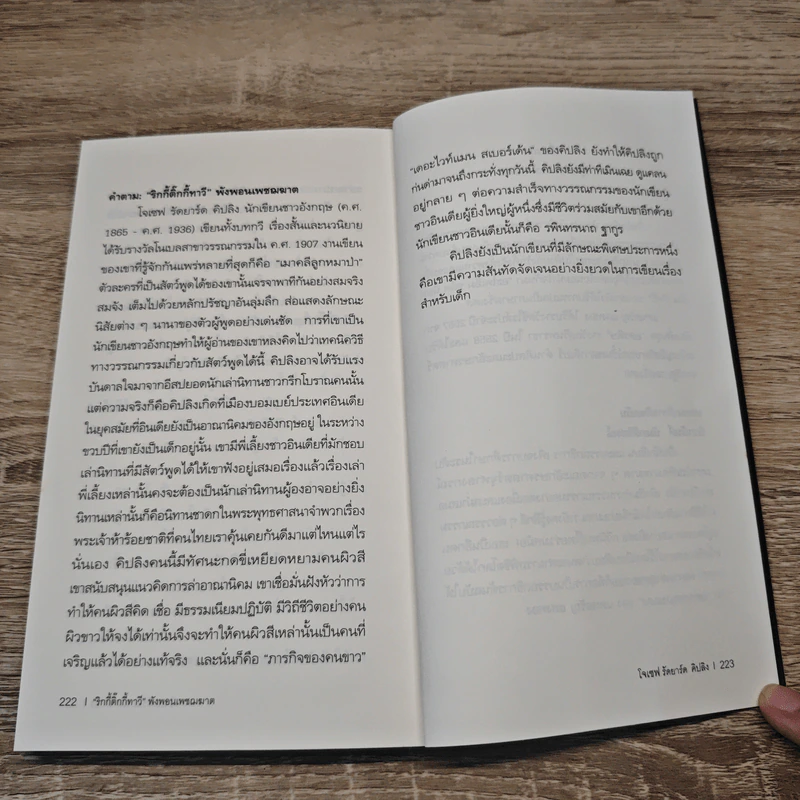 คำตาม: "ริกกี้ติ๊กกี้ทาวี" พังพอนเพชฌฆาต
โจเซฟ รัดยาร์ด คิปลิง นักเขียนชาวอังกฤษ (ค.ศ.
1865 - ค.ศ. 1936) เขียนทั้งบทกวี เรื่องสั้นและนวนิยาย
ได้รับรางวัลโนเบลสาขาวรรณกรรมใน ค.ศ. 1907 งานเขียน
ของเขาที่รู้จักกันแพร่หลายที่สุดก็คือ "เมาคลีลูกหมาป่า"
ตัวละครที่เป็นสัตว์พูดได้ของเขานั้นเจรจาพาทีกันอย่างสมจริง
สมจัง เต็มไปด้วยหลักปรัชญาอันลุ่มลึก ส่อแสดงลักษณะ
นิสัยต่าง ๆ นานาของตัวผู้พูดอย่างเด่นชัด การที่เขาเป็น
นักเขียนชาวอังกฤษทำให้ผู้อ่านของเขาหลงคิดไปว่าเทคนิควิธี
ทางวรรณกรรมเกี่ยวกับสัตว์พูดได้นี้ คิปลิงอาจได้รับแรง
บันดาลใจมาจากอีสปยอดนักเล่านิทานชาวกรีกโบราณคนนั้น
แต่ความจริงก็คือคิปลิงเกิดที่เมืองบอมเบย์ประเทศอินเดีย
ในยุคสมัยที่อินเดียยังเป็นอาณานิคมของอังกฤษอยู่ ในระหว่าง
ขวบปีที่เขายังเป็นเด็กอยู่นั้น เขามีพี่เลี้ยงชาวอินเดียที่มักชอบ
เล่านิทานที่มีสัตว์พูดได้ให้เขาฟังอยู่เสมอเรื่องแล้วเรื่องเล่า
พี่เลี้ยงเหล่านั้นคงจะต้องเป็นนักเล่านิทานผู้องอาจอย่างยิ่ง
นิทานเหล่านั้นก็คือนิทานชาดกในพระพุทธศาสนาจำพวกเรื่อง
พระเจ้าห้าร้อยชาติที่คนไทยเราคุ้นเคยกันดีมาแต่ไหนแต่ไร
นั่นเอง คิปลิงคนนี้มีทัศนะกดขี่เหยียดหยามคนผิวสี
เขาสนับสนุนแนวคิดการล่าอาณานิคม เขาเชื่อมั่นฝังหัวว่าการ
ทำให้คนผิวสีคิด เชื่อ มีธรรมเนียมปฏิบัติ มีวิถีชีวิตอย่างคน
ผิวขาวให้จงได้เท่านั้นจึงจะทำให้คนผิวสีเหล่านั้นเป็นคนที่
เจริญแล้วได้อย่างแท้จริง และนั่นก็คือ "ภารกิจของคนขาว"
222 | "ริกกี้ติ๊กกี้ทาวี" พังพอนเพชฌฆาต
"เดอะไวท์แมน สเบอร์เด้น" ของคิปลิง ยังทำให้คิปลิงถูก
ก่นด่ามาจนถึงกระทั่งทุกวันนี้ คิปลิงยังมีท่าทีเมินเฉย ดูแคลน
อยู่กลาย ๆ ต่อความสำเร็จทางวรรณกรรมของนักเขียน
ชาวอินเดียผู้ยิ่งใหญ่ผู้หนึ่งซึ่งมีชีวิตร่วมสมัยกับเขาอีกด้วย
นักเขียนชาวอินเดียนั้นก็คือ รพินทรนาถ ฐากูร
คิปลิงยังเป็นนักเขียนที่มีลักษณะพิเศษประการหนึ่ง
คือเขามีความสันทัดจัดเจนอย่างยิ่งยวดในการเขียนเรื่อง
สำหรับเด็ก
โจเซฟ รัดยาร์ด คิปลิง | 223